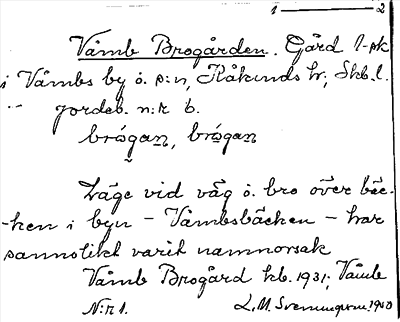 1 ——— 2
Våmb Brogården. Gård 1-pk
i Våmbs by o. p:n, Kåkinds hr, Skb. l.
" jordeb. n:r 6.
brógan, brógan
Läge vid väg o. bro över bäc-
-ken i byn - Våmbsbäcken - har
sannolikt varit namnorsak
Våmb Brogård kb. 1931; Våmb
N:r 1. L. M. Svenungsson. 1950